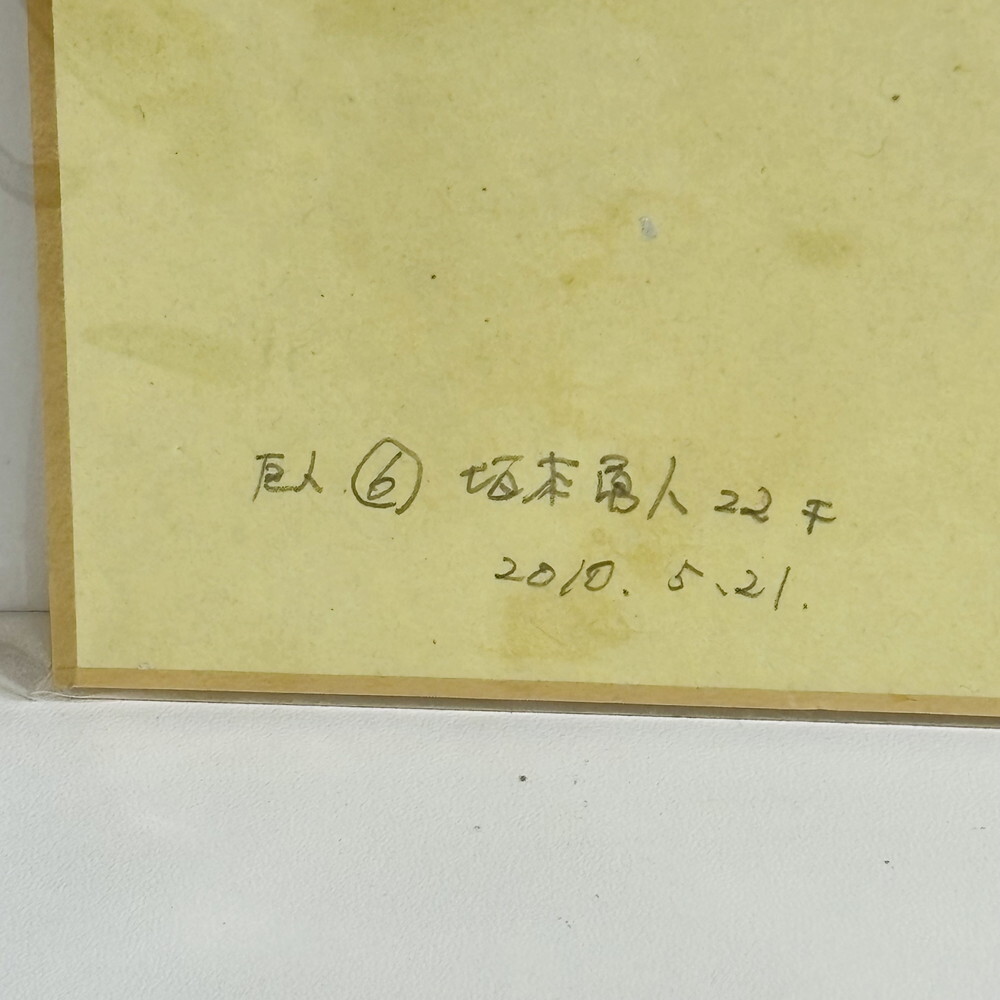 巨人 ⑥ 坂本勇人 22才
2010. 5.21.